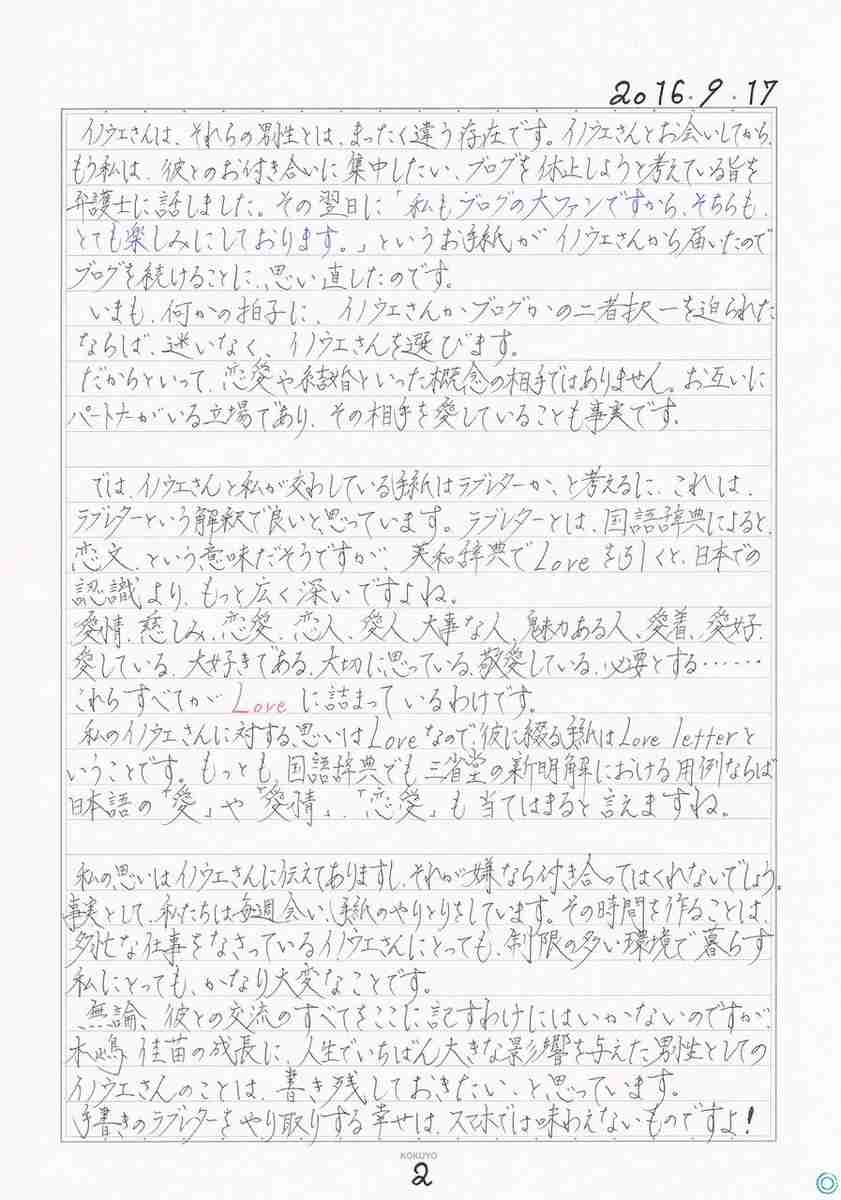 2016.9.17
イノウエさんは、それらの男性とは、まったく違う存在です。イノウエさんとお会いしてから、
もう私は、彼とのお付き合いに集中したい、ブログを休止しようと考えている旨を
弁護士に話しました。その翌日に「私もブログの大ファンですから、そちらも、
とても楽しみにしております。」というお手紙がイノウエさんから届いたので
ブログを続けることに、思い直したのです。
いまも、何かの拍子に、イノウエさんかブログかの二者択一を迫られた
ならば、迷いなく、イノウエさんを選びます。
だからといって、恋愛や結婚といった概念の相手ではありません。お互いに
パートナーがいる立場であり、その相手を愛していることも事実です。
では、イノウエさんと私が交わしている手紙はラブレターか、と考えるに、これは、
ラブレターという解釈で良いと、思っています。ラブレターとは、国語辞典によると、
恋文、という意味だそうですが、英和辞典でLoveを引くと、日本での
認識より、もっと広く深いですよね。
愛情、慈しみ、恋愛、恋人、愛人、大事な人、魅力ある人、愛着、愛好、
愛している、大好きである、大切に思っている、敬愛している、必要とする……
これらすべてが Love に詰まっているわけです。
私のイノウエさんに対する、思いはLoveなので彼に綴る手紙はLove letterと
いうことです。もっとも、国語辞典でも三省堂の新明解における用例ならば
日本語の「愛」や「愛情」、「恋愛」も当てはまると言えますね。
私の思いはイノウエさんに伝えてありますし、それが嫌なら付き合ってはくれないでしょう。
事実として、私たちは毎週会い、手紙のやりとりをしています。その時間を作ることは、
多忙な仕事をなさっているイノウエさんにとっても、制限の多い環境で暮らす
私にとっても、かなり大変なことです。
無論、彼との交流のすべてをここに記すわけにはいかないのですが、
木嶋佳苗の成長に、人生でいちばん大きな影響を与えた男性としての
イノウエさんのことは、書き残しておきたい、と思っています。
手書きのラブレターをやり取りする幸せは、スマホでは味わえないものですよ！
KOKUYO
2